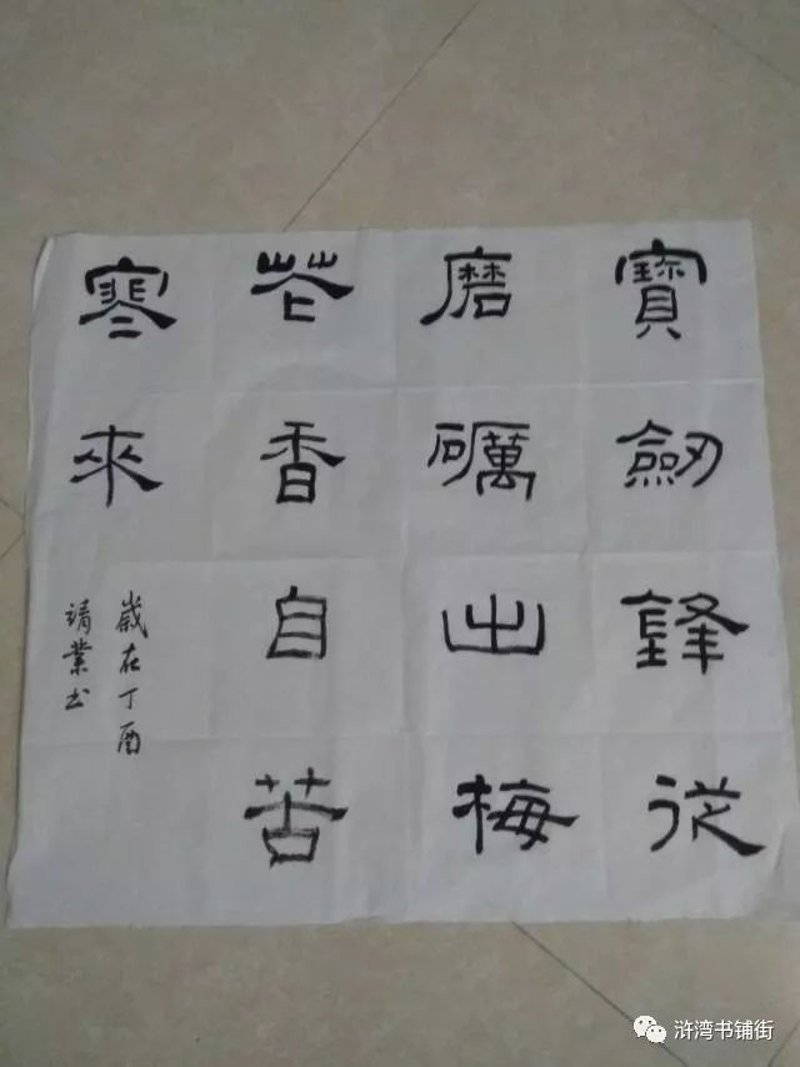 寶劒鋒從
磨礪出梅
花香自苦
寒來
歲在丁酉
靖業书
浒湾书铺街